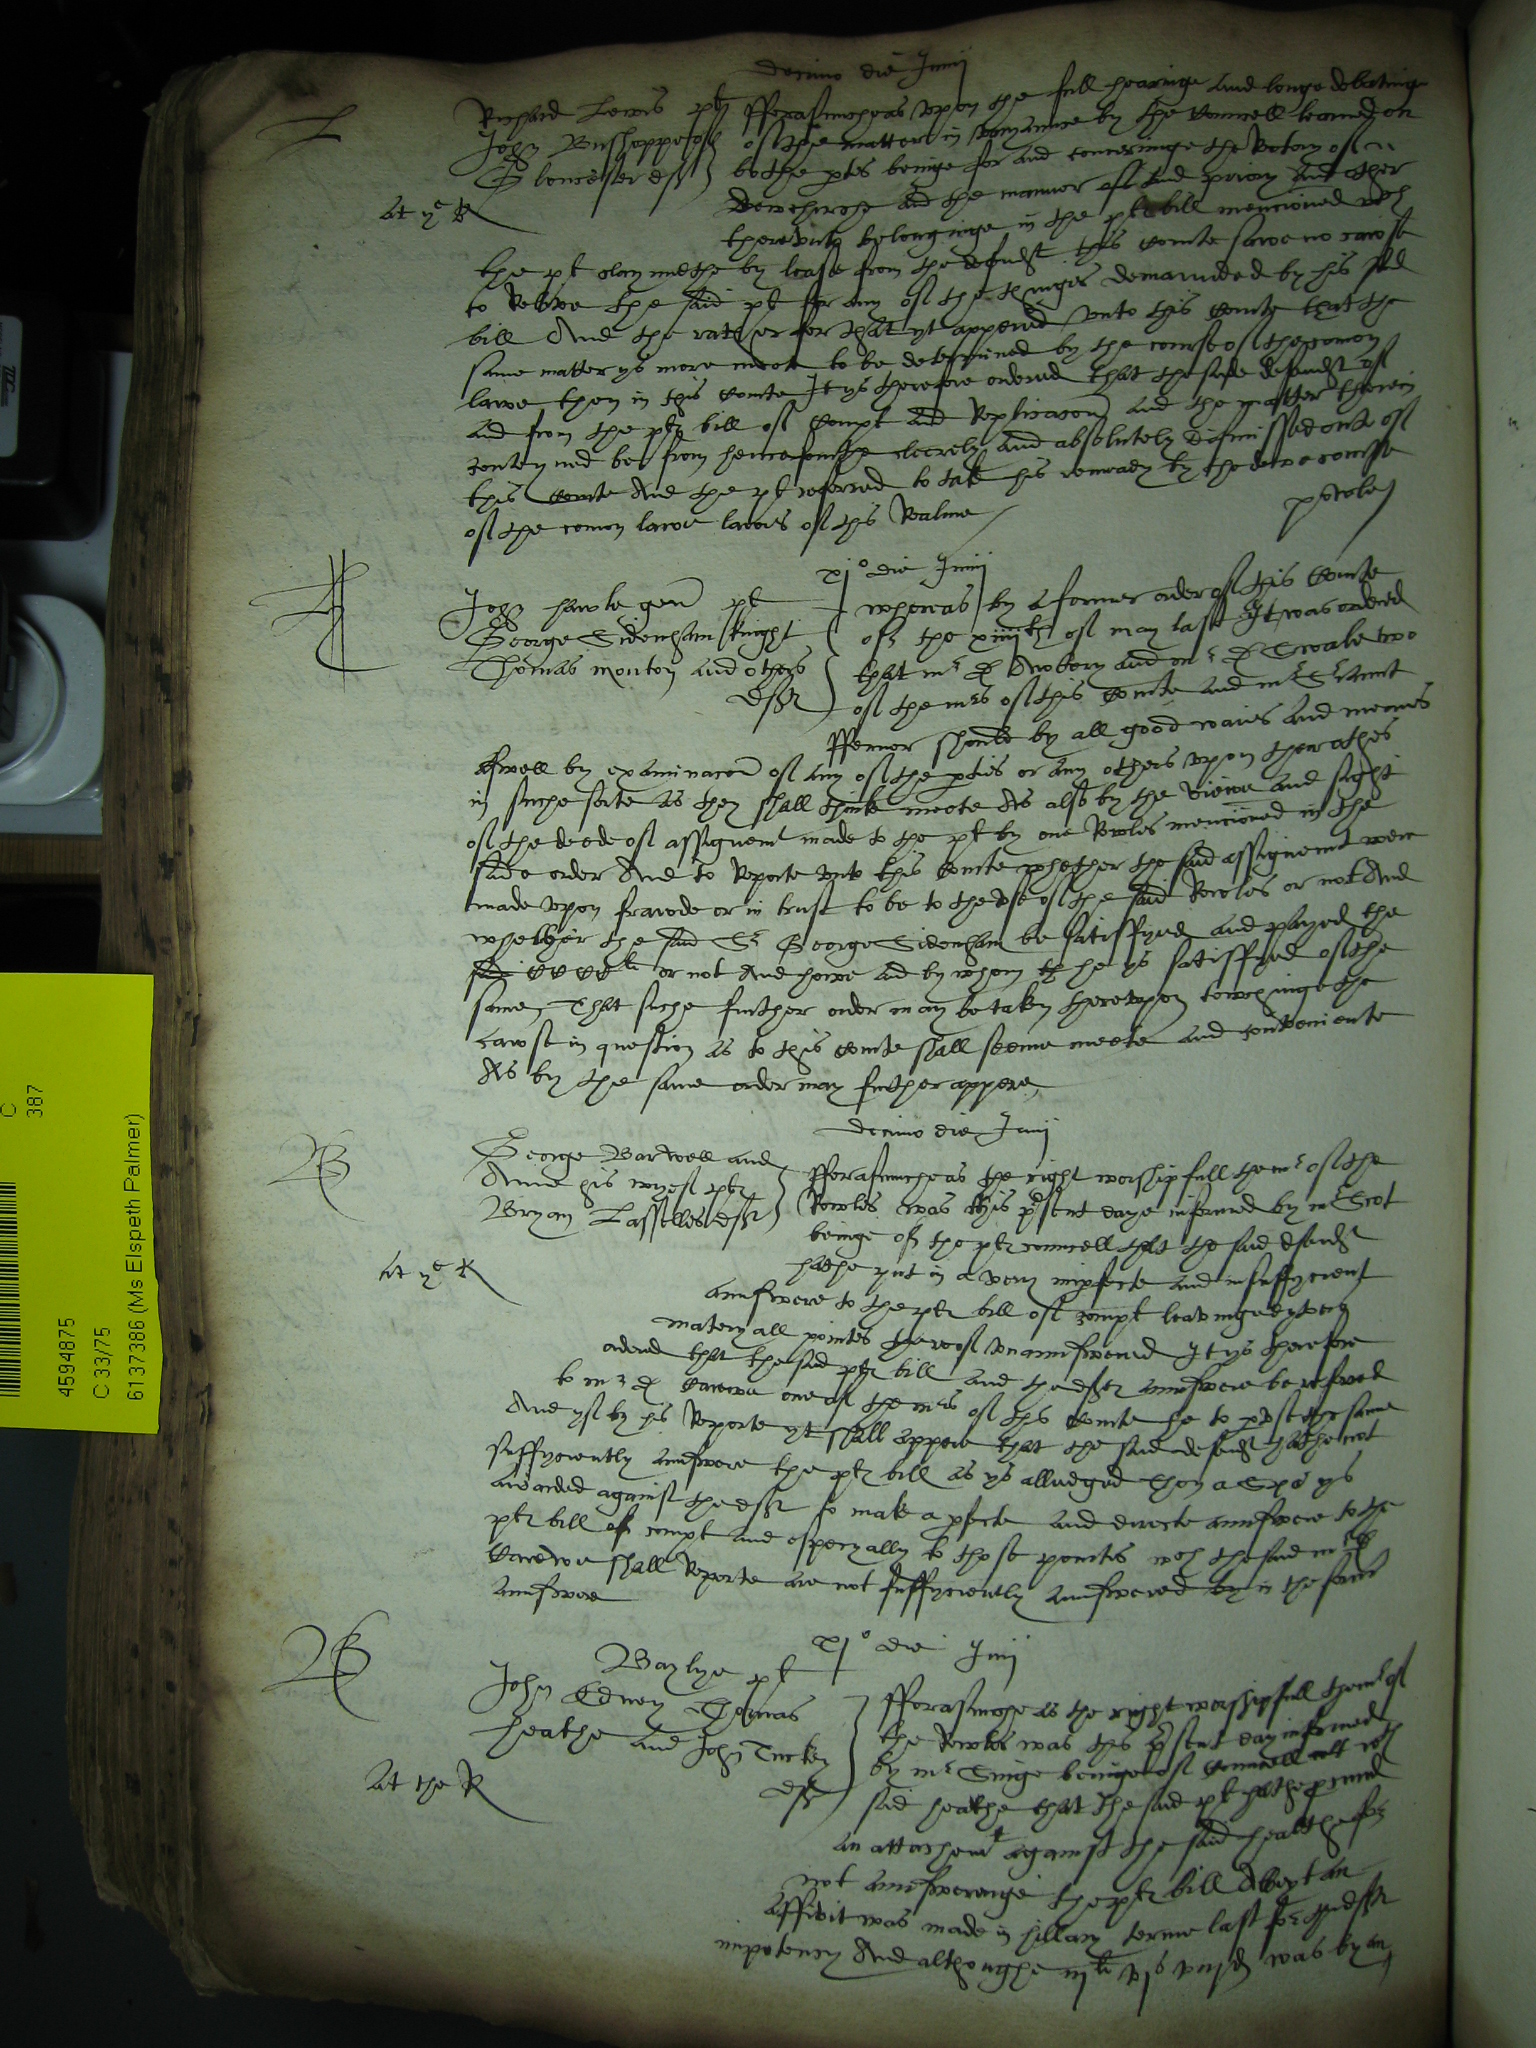 decimo die Junij
L
Richard Lewis plt
John Busshoppe of
Gloucester deft
At ye R
fforasmuche as upon the full hearinge and longe debatinge
of the matter in variaunce by the Counsell learned on
bothe ptes beinge for and concerninge the Rectory of
Dewchurche and the mannor of and priory and other
thereunto belonginge in the plts bill mencioned wch
the plt claymethe by lease from the defendt this Courte sawe no cawse
to Releve the said plt for any of the thinges demaunded by his said
bill And the rather for that yt appered unto this Courte that the
same matter ys more meete to be determined by the course of the comon
lawe then in this Courte It ys therefore ordered that the saide defendt of
and from the plts bill of Compt and Replicacon and the matter therein
conteyned be from hencefourthe clerely and absolutely dismissed oute of
this Courte And the plt referred to take his remedy by the dewe course
of the comon lawe lawes of this Realme
xjo die Junij
H
John hawle gen plt
George Sidenham knight
Thomas mouton and others
defts
whereas by a former order of this Courte
of the xiiijth of may last It was ordered
that mr D Awbery and mr D Scoale two
of the mrs of this Courte and mr Serant
ffenner should by all good waies and meanes
aswell by examinacon of any of the pties or any others upon their othes
in suche sorte as they shall thinke meete As also by the viewe and sight
of the deede of assignemt made to the plt by one Rowles mencioned in the
saide order And to Reporte unto this Courte whether the said assignemt were
made upon frawde or in trust to be to the use of the said Rowles or not And
whether the said Sr George Sidenham be satisffyed and payed the
said CCCCli or not And howe and by whom he ys satisffyed of the
same, That suche further order may be taken thereupon towchinge the
cawse in question as to this Courte shall seeme meete and conveniente
As by the same order may further appere,
decimo die Junij
B
George Barwell and
Anne his wyef plts
Bryan Lasselles deft
At ye R
fforasmuche as the right worshipfull the mr of the
Rowles was this present daye informed by mr Scot
beinge of the plts councell that the said defendt
hathe put in a very imperfecte and insuffycient
aunswere to the plts bill of compt leavinge dyvers
materyall pointes thereof unaunswered It ys therefore
ordered that the said plts bill and the defts aunswere be referred
to mr D Carewe one of the mrs of this Courte he to peruse the same
And yf by his Reporte yt shall appere that the said defendt hathe not
suffyciently aunswere the plts bill as ys alledged Then a Spa ys
awarded against the deft to make a perfecte and directe aunswere to the
plts bill of compt and especyally to those pointes wch the said mr D
Carewe shall Reporte are not suffyciently aunswered by in the said
aunswere
xjo die Junij
B
Baylye plt
John Edney Thomas
heathe and John Turkey
defts
At the R
fforasmuche as the right worshipfull the mr of
the Rowles was this present day informed
by mr Singe beinge of Councell wth
said heathe that the said plt hathe procured
an attachemt against the said heathe for
not aunsweringe the plts bill Albeyt an
affidvit was made in hillary terme last for the defts
impotency And althoughe was by an